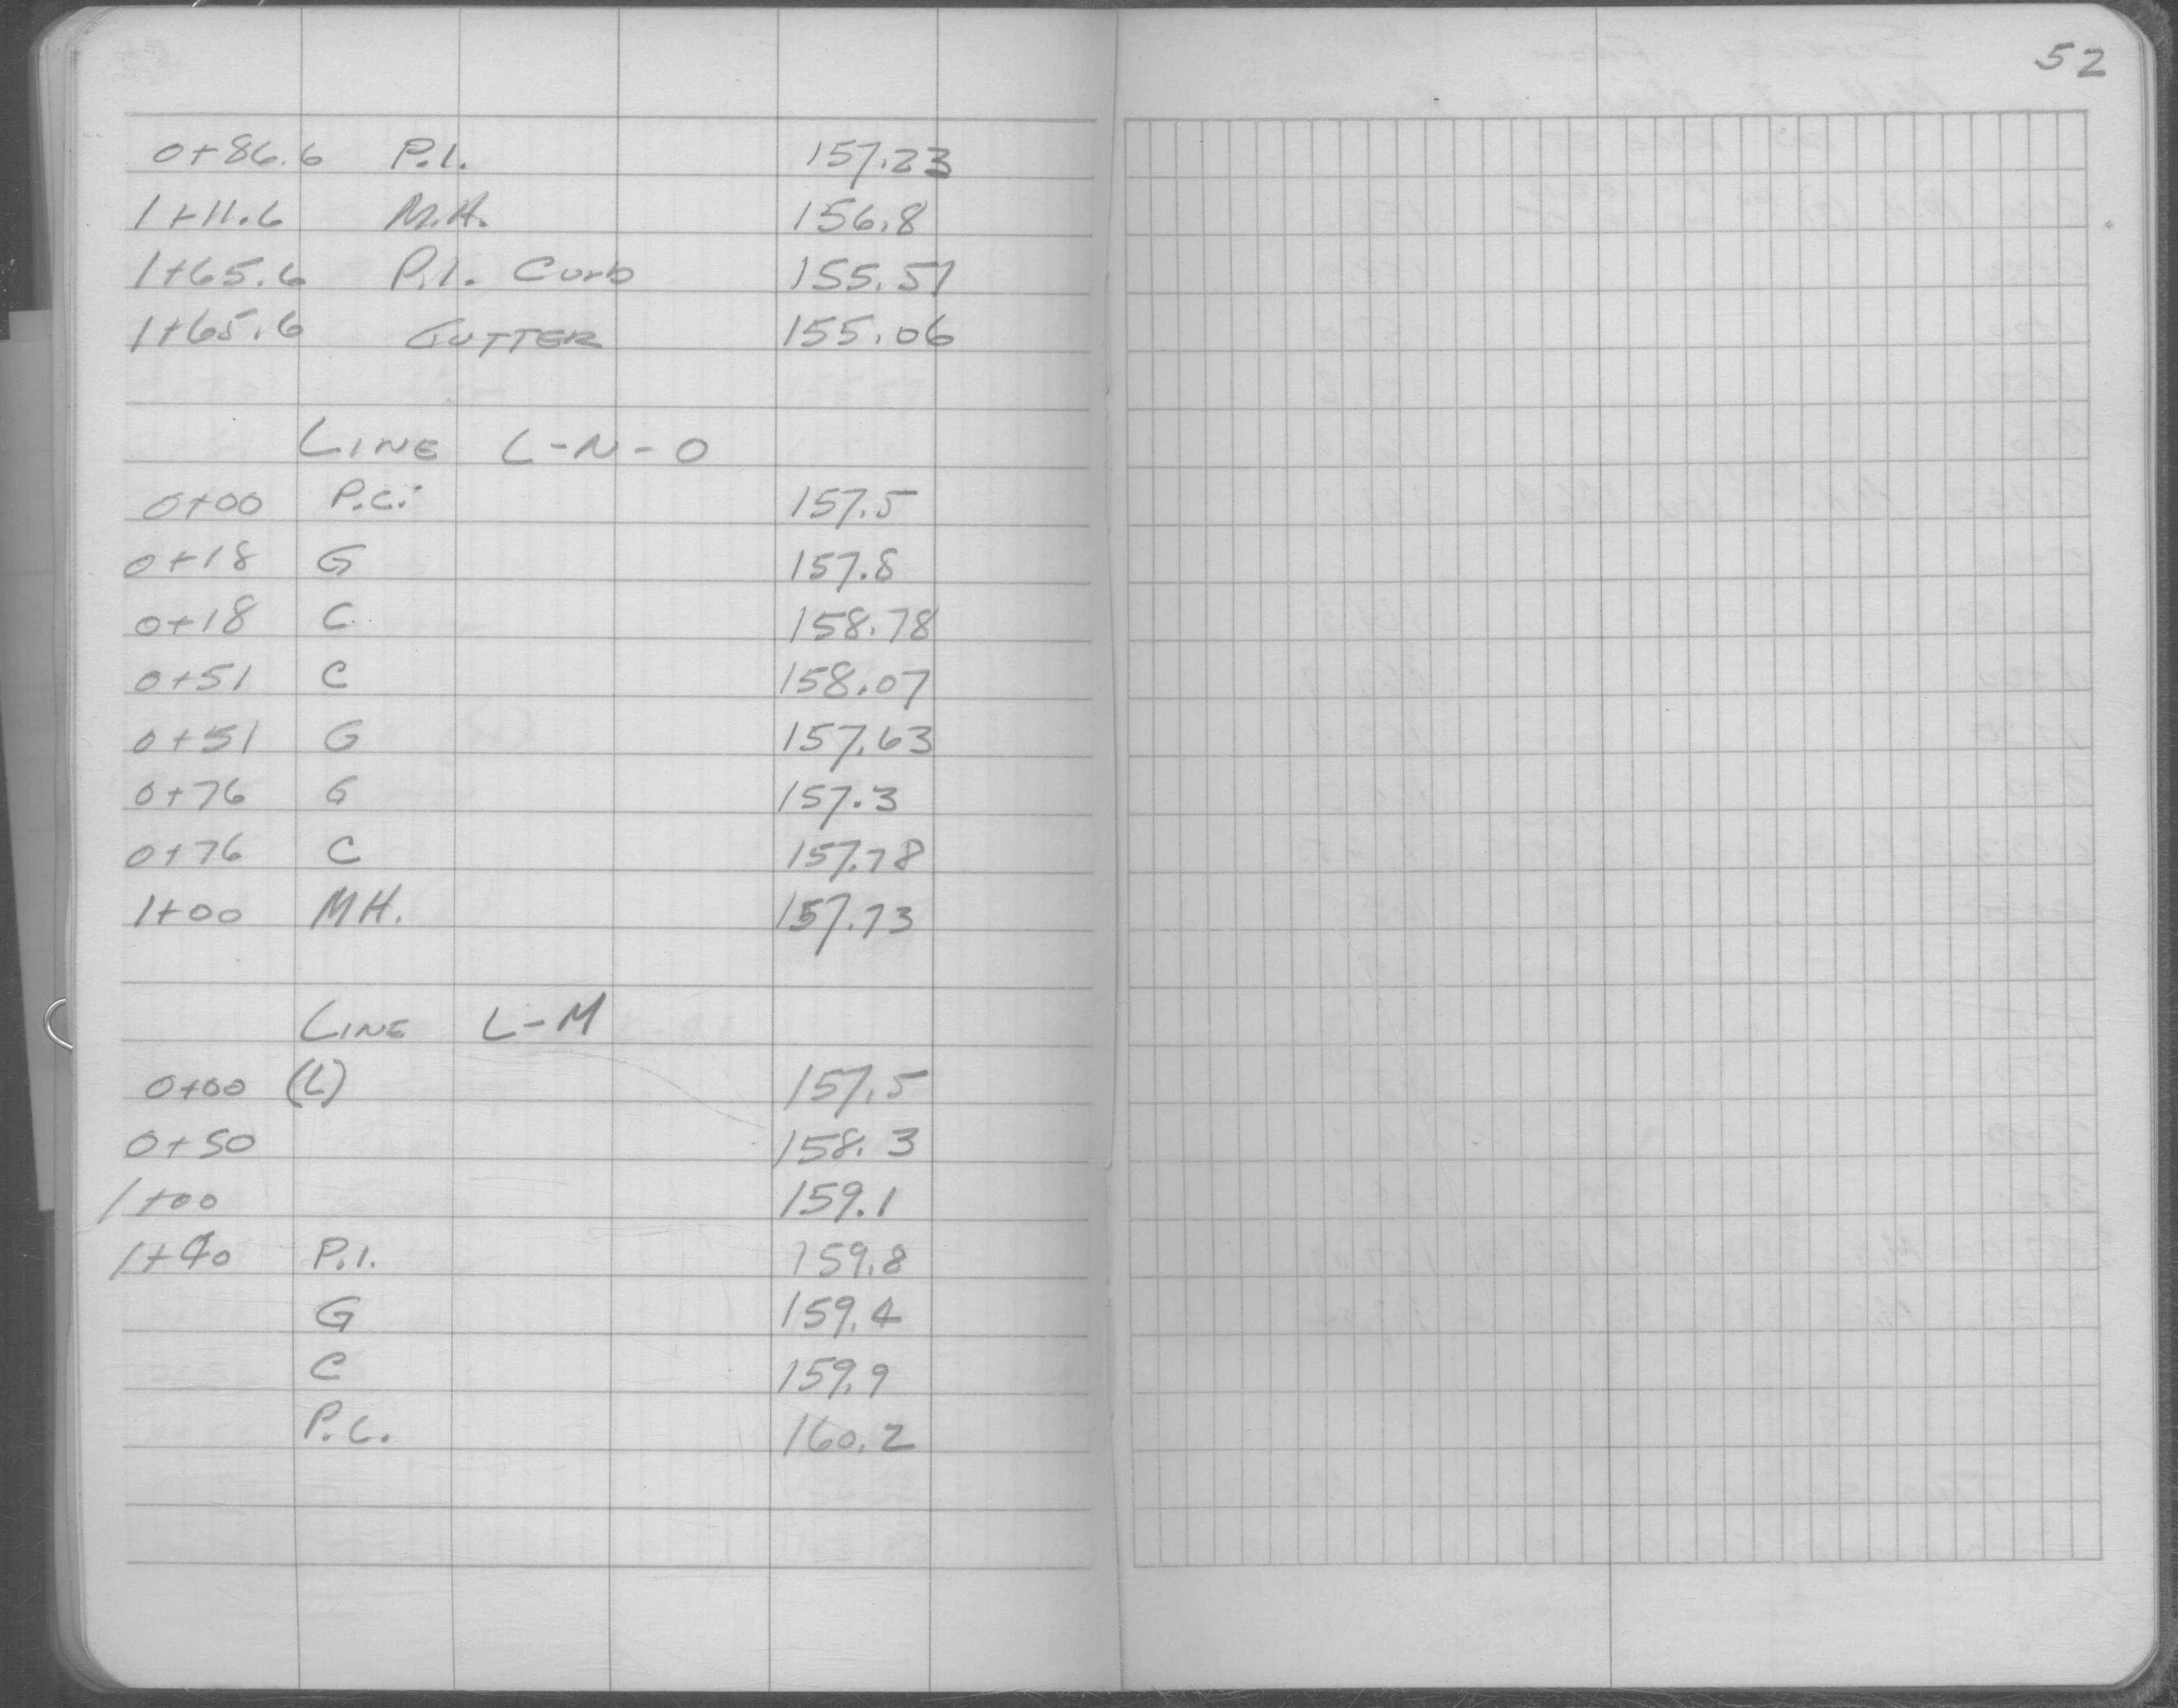 52
0+86.6 P.I. 157.23
1+11.6 M.H. 156.8
1+65.6 P.I. Curb 155.51
1+65.6 GUTTER 155.06
LINE L-N-O
0+00 P.C. 157.5
0+18 G 157.8
0+18 C 158.78
0+51 C 158.07
0+51 G 157.63
0+76 G 157.3
0+76 C 157.78
1+00 MH. 157.73
LINE L-M
0+00 (L) 157.5
0+50 158.3
1+00 159.1
1+40 P.I. 159.8
G 159.4
C 159.9
P.L. 160.2